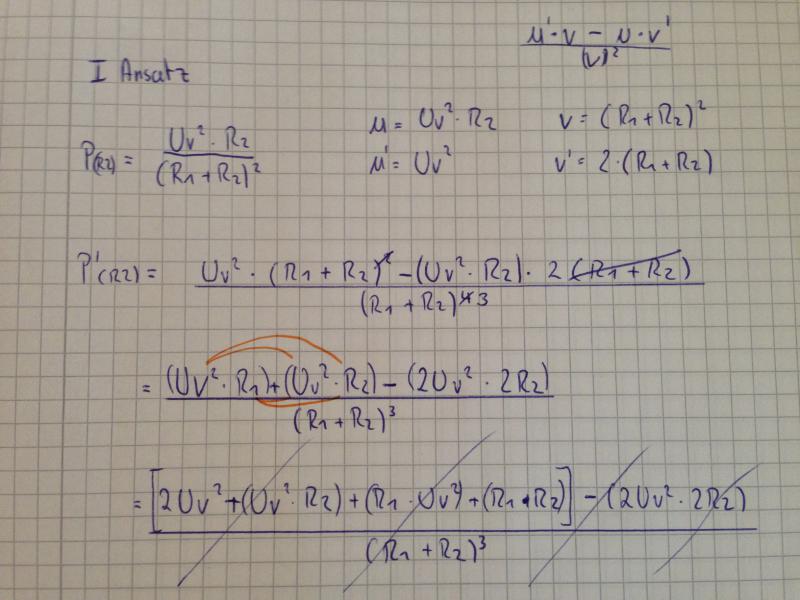 μ'·v − μ·v'
(v)²
I Ansatz
P(R2) = Uv²·R2 / (R1+R2)²
μ = Uv²·R2
v = (R1+R2)²
μ' = Uv²
v' = 2·(R1+R2)
P'(R2) = Uv²·(R1+R2)² − (Uv²·R2)·2(R1+R2)
(R1+R2)⁴ 3
= (Uv²·R1)+(Uv²·R2) − (2Uv²·2R2)
(R1+R2)³
= [2Uv²+(Uv²·R2)+(R1·Uv²)+(R1·R2)] − (2Uv²·2R2)
(R1+R2)³